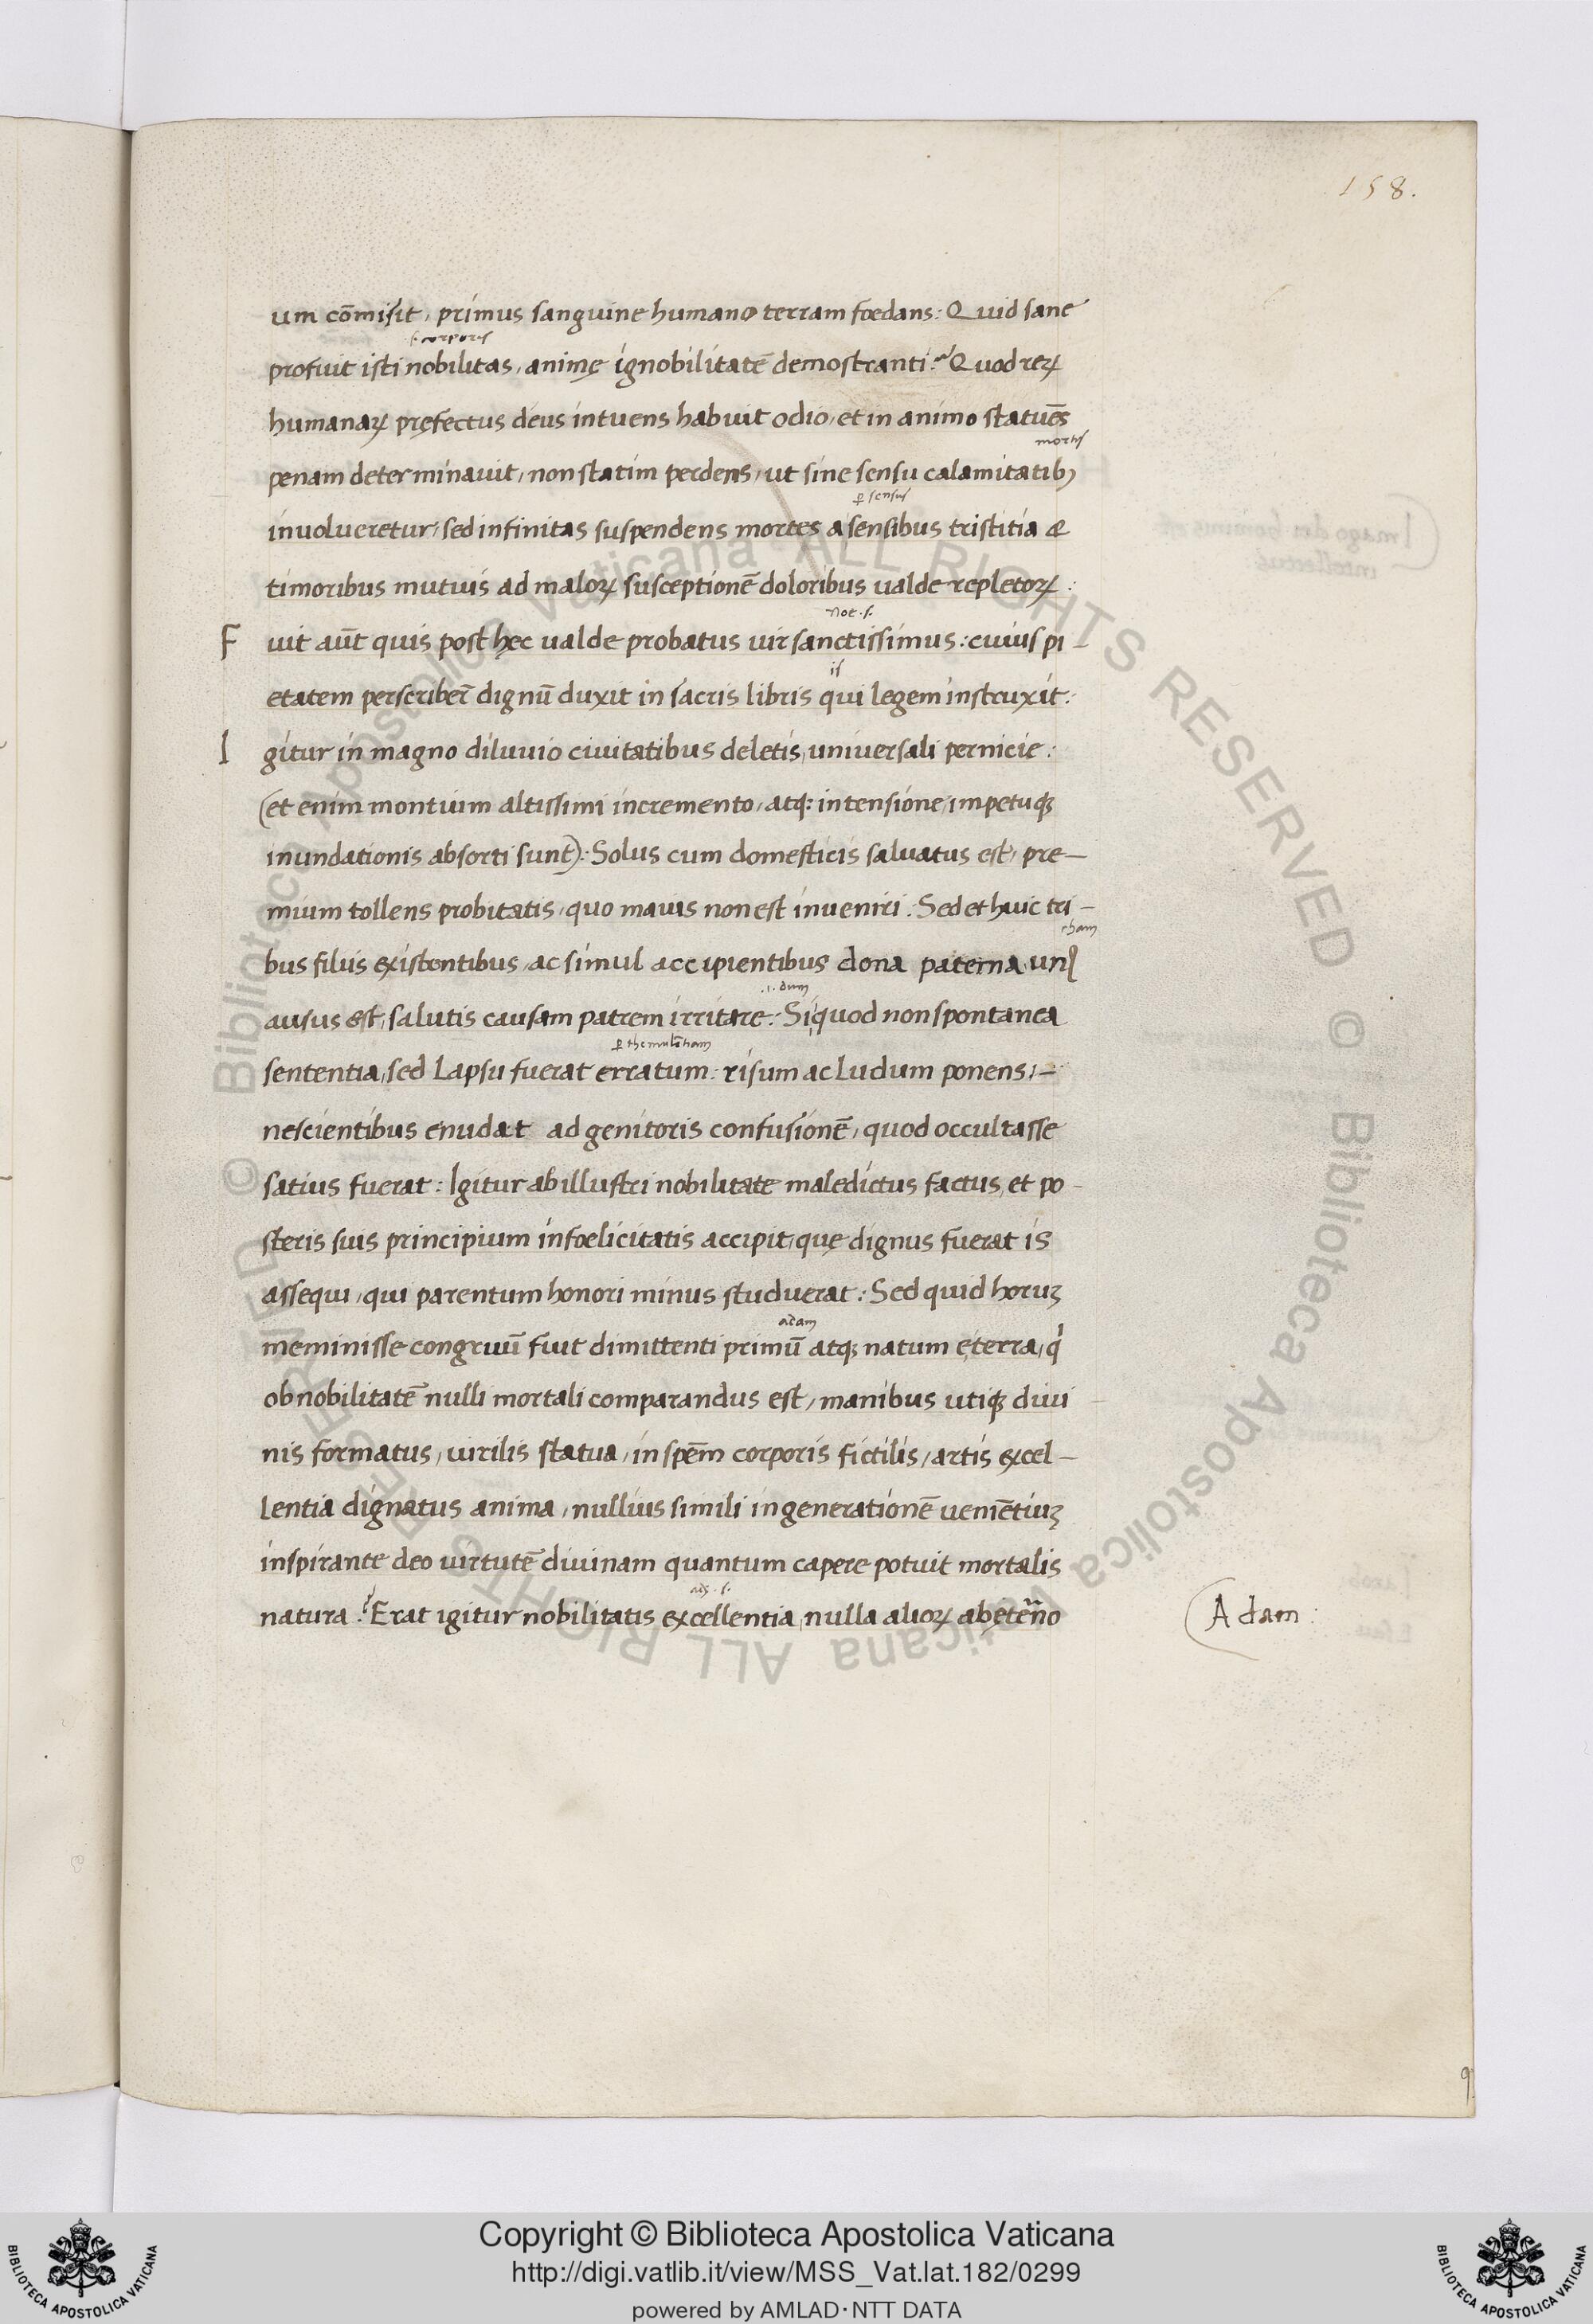 158.
um cōmisit, primus sanguine humano terram foedans: Quid sane
s. corporis
profuit isti nobilitas, animę ignobilitatē demostranti? Quod reꝝ
humanaꝝ pręfectus deus intuens habuit odio, et in animo statuēs
mortis
penam determinauit, non statim perdens, ut sine sensu calamitatibꝫ
ꝑ sensus
inuolueretur, sed infinitas suspendens mortes a sensibus tristitia &
timoribus mutuis ad maloꝝ susceptionē doloribus ualde repletoꝝ:
noe. s.
Fuit aūt quis post hęc ualde probatus uir sanctissimus: cuius pi-
is
etatem perscriber̄ dignū duxit in sacris libris qui legem instruxit:
Igitur in magno diluuio ciuitatibus deletis, uniuersali pernicie:
(et enim montium altissimi incremento, atqꝫ intensione, impetuqꝫ
inundationis absorti sunt): Solus cum domesticis saluatus est, pre-
mium tollens probitatis, quo mauis non est inueniri: Sed et huic tri-
cham
bus filiis existentibus, ac simul accipientibus dona paterna, unꝰ
ausus est, salutis causam patrem irritare: Si quod non spontanea
.i. dum
sententia, sed Lapsu fuerat erratum: risum ac Ludum ponens,-
nescientibus enudat ad genitoris confusionē, quod occultasse
satius fuerat: Igitur ab illustri nobilitate maledictus factus, et po-
steris suis principium infoelicitatis accipit, quę dignus fuerat is
assequi, qui parentum honori minus studuerat: Sed quid horuꝫ
adam
meminisse congruū fuit dimittenti primū atqꝫ natum ę terra, qͥ
ob nobilitatē nulli mortali comparandus est, manibus utiqꝫ diui-
nis formatus, uirilis statua, in spēm corporis fictilis, artis excel-
lentia dignatus anima, nullius simili in generationē ueniētiuꝫ
inspirante deo uirtutē diuinam quantum capere potuit mortalis
natura? Erat igitur nobilitatis excellentia, nulla alioꝝ ab
Adam:
Copyright © Biblioteca Apostolica Vaticana
http://digi.vatlib.it/view/MSS_Vat.lat.182/0299
powered by AMLAD·NTT DATA
BIBLIOTECA APOSTOLICA VATICANA
BIBLIOTECA APOSTOLICA VATICANA
© Biblioteca Apostolica Vaticana ALL RIGHTS RESERVED © Biblioteca Apostolica Vaticana ALL RIGHTS RESERVED